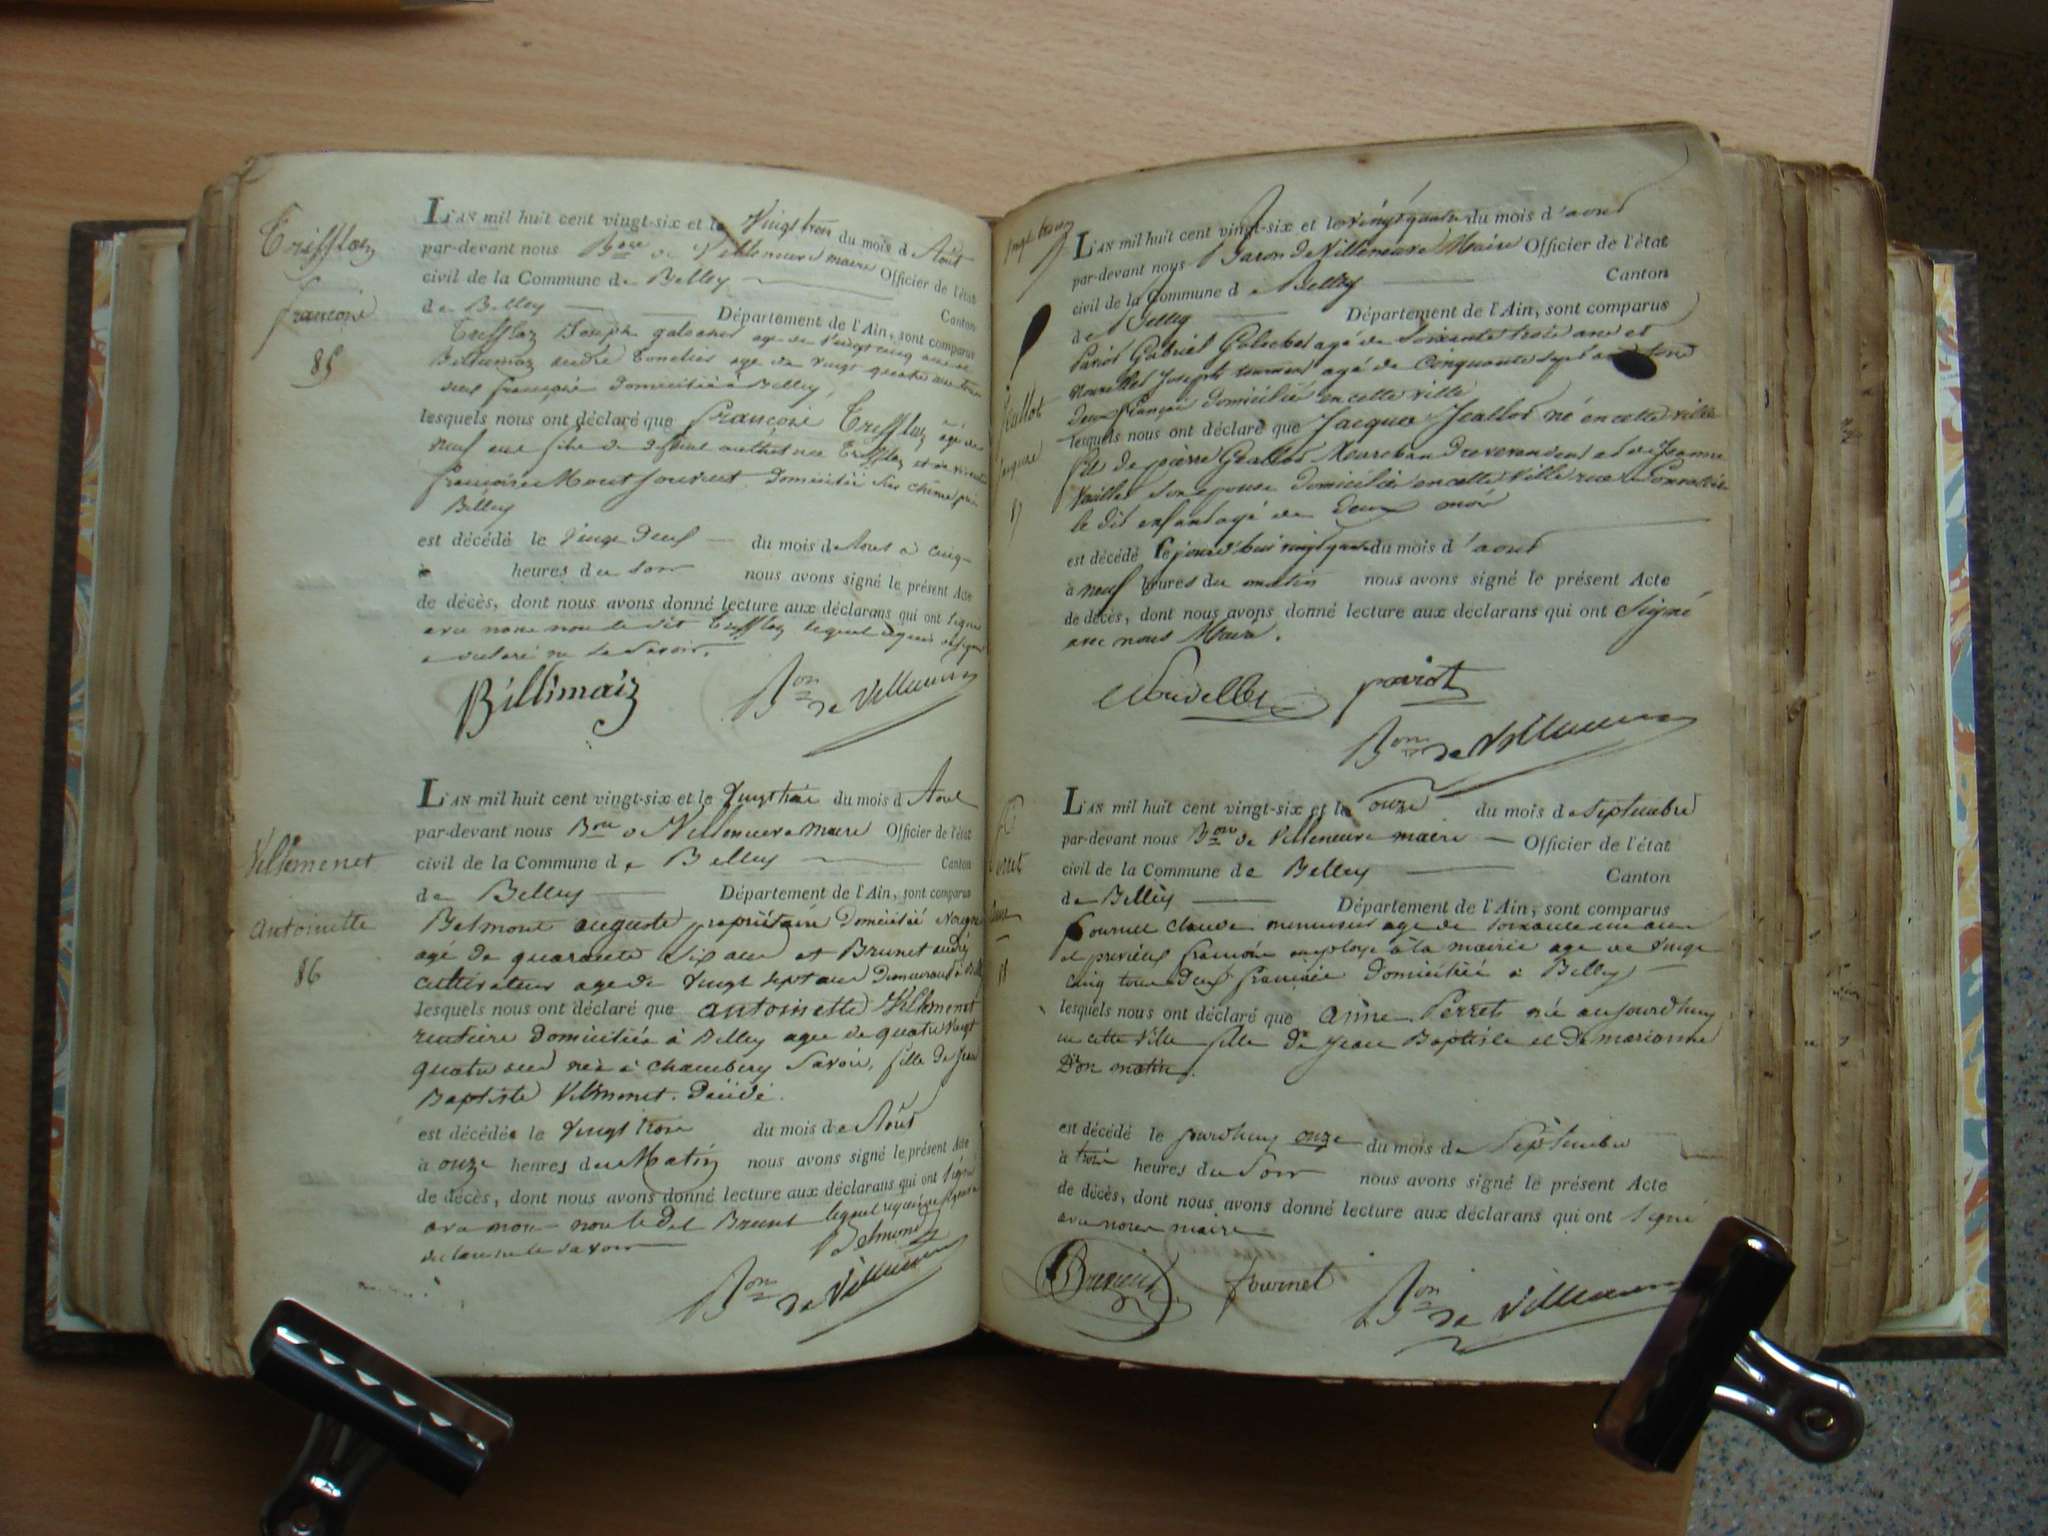 Triffloz
françoise
85
L'AN mil huit cent vingt-six et le Vingt trois du mois d Août
par-devant nous Bon de Villeneuve maire Officier de l'état
civil de la Commune de Belley Canton
de Belley Département de l'Ain, sont comparus
Triffloz Joseph galocher age de Vingt cinq ans et
Billimaz andré tonelier age de vingt quatre ans tous
deux français Domicilié à Belley
lesquels nous ont déclaré que françoise Triffloz âgé de
neuf ans fille de Triffloz et de
françoise Montjouvent Domicilié près
Belley
est décédé le Vingt Deux du mois d Aout à cinq
heures du soir nous avons signé le présent Acte
de décès, dont nous avons donné lecture aux déclarans qui ont signé
avec nous non le dit Triffloz lequel requis de signer
a declaré ne le savoir.
Billimaiz Bon de Villeneuve
Villemenet
antoinette
86
L'AN mil huit cent vingt-six et le Vingt trois du mois d Aout
par-devant nous Bon de Villeneuve maire Officier de l'état
civil de la Commune de Belley Canton
de Belley Département de l'Ain, sont comparus
Belmont auguste propriétaire Domicilié
agé de quarante six ans et Brunet andré
cultivateur age de vingt sept ans Demeurant à
lesquels nous ont déclaré que antoinette Villemenet
rentiere Domiciliée à Belley agee de quatre vingt
quatre ans née à chambery Savoie, fille de Jean
Baptiste Villmenet. Décédé.
est décédée le vingt trois du mois de Août
à onze heures du Matin nous avons signé le présent Acte
de décès, dont nous avons donné lecture aux déclarans qui ont signé
avec nous non le dit Brunet lequel requis de signer a
declaré ne le savoir
Belmont
Bon de Villeneuve
L'AN mil huit cent vingt-six et le vingt quatre du mois d'aout
par-devant nous Baron de Villeneuve Maire Officier de l'état
civil de la Commune d e Belley Canton
de Belley Département de l'Ain, sont comparus
Pariot Gabriel Galocher agé de soixante trois ans et
Joseph agé de Cinquante sept ans tous
deux français domiciliés en cette ville
lesquels nous ont déclaré que Jacques Jeallot né en cette ville
fils de pierre Jeallot et de Jeanne
son epouse domiciliés en cette Ville rue
le dit enfant agé de Deux mois
est décédé ce jourd'hui vingt quatre du mois d'aout
à neuf heures du matin nous avons signé le présent Acte
de décès, dont nous avons donné lecture aux déclarans qui ont signé
avec nous Maire.
pariot
Bon de Villeneuve
L'AN mil huit cent vingt-six et le onze du mois de Septembre
par-devant nous Bon de Villeneuve maire Officier de l'état
civil de la Commune de Belley Canton
de Belley Département de l'Ain, sont comparus
fournet Claude menuisier age de soixante un ans
et françois employé à la mairie age de Vingt
cinq tous Deux français Domicilié à Belley
lesquels nous ont déclaré que anne Perret né aujourdhuy
en cette Ville fille de Jean Baptiste et De marianne
D'on matin.
est décédé le jourdhuy onze du mois de Septembre
à trois heures du Soir nous avons signé le présent Acte
de décès, dont nous avons donné lecture aux déclarans qui ont signé
avec nous maire
fournet
Bon de Villeneuve